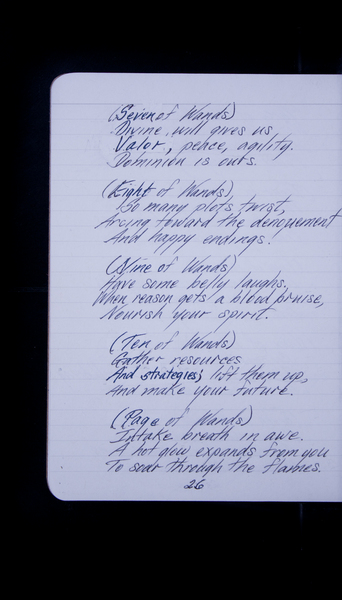 (Seven of Wands)
Divine will gives us
Valor, peace, agility.
Dominion is ours.
(Eight of Wands)
So many plots twist,
Arcing toward the denouement
And happy endings!
(Nine of Wands)
Have some belly laughs.
When reason gets a blood bruise,
Nourish your spirit.
(Ten of Wands)
Gather resources
And strategies; lift them up,
And make your future.
(Page of Wands)
Intake breath in awe.
A hot glow expands from you
To soar through the flames.
26